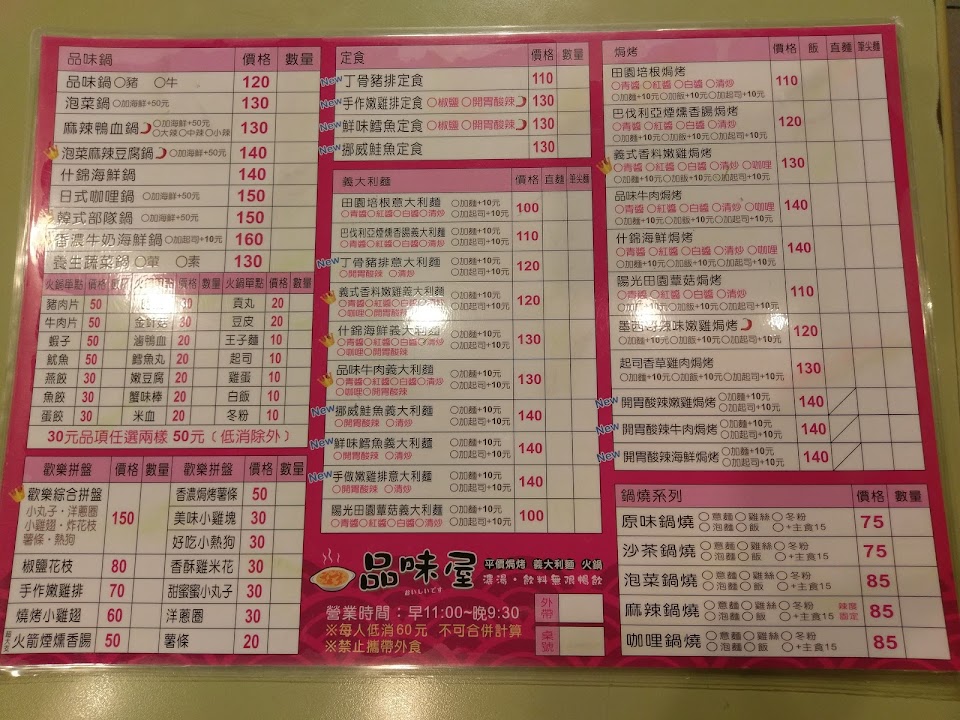 品味鍋 價格 數量
品味鍋 ○豬 ○牛 120
泡菜鍋 ○加海鮮+50元 130
麻辣鴨血鍋 ○加海鮮+50元 ○大辣○中辣○小辣 130
泡菜麻辣豆腐鍋 ○加海鮮+50元 140
什錦海鮮鍋 140
日式咖哩鍋 ○加海鮮+50元 150
韓式部隊鍋 ○加海鮮+50元 150
香濃牛奶海鮮鍋 ○加起司+10元 160
養生蔬菜鍋 ○葷 ○素 130
火鍋單點 價格 數量 火鍋單點 價格 數量 火鍋單點 價格 數量
豬肉片 50 貢丸 20
牛肉片 50 金針菇 30 豆皮 20
蝦子 50 滷鴨血 20 王子麵 10
魷魚 50 鱈魚丸 20 起司 10
燕餃 30 嫩豆腐 20 雞蛋 10
魚餃 30 蟹味棒 20 白飯 10
蛋餃 30 米血 20 冬粉 10
30元品項任選兩樣 50元（低消除外）
歡樂拼盤 價格 數量 歡樂拼盤 價格 數量
歡樂綜合拼盤 小丸子・洋蔥圈 小雞翅・炸花枝 薯條・熱狗 150
香濃焗烤薯條 50
美味小雞塊 30
好吃小熱狗 30
椒鹽花枝 80 香酥雞米花 30
手作嫩雞排 70 甜蜜蜜小丸子 30
燒烤小雞翅 60 洋蔥圈 30
超大支 火箭煙燻香腸 50 薯條 20
定食 價格 數量
New 丁骨豬排定食 110
New 手作嫩雞排定食 ○椒鹽 ○開胃酸辣 130
New 鮮味鱈魚定食 ○椒鹽 ○開胃酸辣 130
New 挪威鮭魚定食 130
義大利麵 價格 直麵 筆尖麵
田園培根意大利麵 ○加麵+10元
○青醬○紅醬○白醬○清炒 ○加起司+10元 100
巴伐利亞煙燻香腸義大利麵 ○加麵+10元
○青醬○紅醬○白醬○清炒 ○加起司+10元 110
New 丁骨豬排意大利麵 ○加麵+10元
○開胃酸辣 ○清炒 ○加起司+10元 120
義式香料嫩雞義大利麵 ○加麵+10元
○青醬○紅醬○白醬○清炒 ○加起司+10元 120
○咖哩○開胃酸辣
什錦海鮮義大利麵 ○加麵+10元
○青醬○紅醬○白醬○清炒 ○加起司+10元 130
○咖哩○開胃酸辣
品味牛肉義大利麵 ○加麵+10元
○青醬○紅醬○白醬○清炒 ○加起司+10元 130
○咖哩○開胃酸辣
New 挪威鮭魚義大利麵 ○加麵+10元
○開胃酸辣 ○清炒 ○加起司+10元 140
New 鮮味鱈魚義大利麵 ○加麵+10元
○開胃酸辣 ○清炒 ○加起司+10元 140
New 手做嫩雞排意大利麵 ○加麵+10元
○開胃酸辣 ○清炒 ○加起司+10元 140
陽光田園蕈菇義大利麵 ○加麵+10元
○青醬○紅醬○白醬○清炒 ○加起司+10元 100
品味屋
おいしいです
平價焗烤 義大利麵 火鍋
濃湯・飲料無限暢飲
營業時間：早11:00~晚9:30
※每人低消60元 不可合併計算
※禁止攜帶外食
外帶
桌號
焗烤 價格 飯 直麵 筆尖麵
田園培根焗烤
○青醬 ○紅醬 ○白醬 ○清炒
○加麵+10元○加飯+10元○加起司+10元 110
巴伐利亞煙燻香腸焗烤
○青醬 ○紅醬 ○白醬 ○清炒
○加麵+10元○加飯+10元○加起司+10元 120
義式香料嫩雞焗烤
○青醬 ○紅醬 ○白醬 ○清炒 ○咖哩
○加麵+10元○加飯+10元○加起司+10元 130
品味牛肉焗烤
○青醬 ○紅醬 ○白醬 ○清炒 ○咖哩
○加麵+10元○加飯+10元○加起司+10元 140
什錦海鮮焗烤
○青醬 ○紅醬 ○白醬 ○清炒 ○咖哩
○加麵+10元○加飯+10元○加起司+10元 140
陽光田園蕈菇焗烤
○青醬 ○紅醬 ○白醬 ○清炒
○加麵+10元○加飯+10元○加起司+10元 110
墨西哥辣味嫩雞焗烤
○加麵+10元○加飯+10元○加起司+10元 120
起司香草雞肉焗烤
○加麵+10元○加飯+10元○加起司+10元 130
New 開胃酸辣嫩雞焗烤 ○加麵+10元 ○加起司+10元 140
New 開胃酸辣牛肉焗烤 ○加麵+10元 ○加起司+10元 140
New 開胃酸辣海鮮焗烤 ○加麵+10元 ○加起司+10元 140
鍋燒系列 價格 數量
原味鍋燒 ○意麵○雞絲○冬粉 ○泡麵○飯 ○+主食15 75
沙茶鍋燒 ○意麵○雞絲○冬粉 ○泡麵○飯 ○+主食15 75
泡菜鍋燒 ○意麵○雞絲○冬粉 ○泡麵○飯 ○+主食15 85
麻辣鍋燒 ○意麵○雞絲○冬粉 ○泡麵○飯 ○+主食15 辣度固定 85
咖哩鍋燒 ○意麵○雞絲○冬粉 ○泡麵○飯 ○+主食15 85